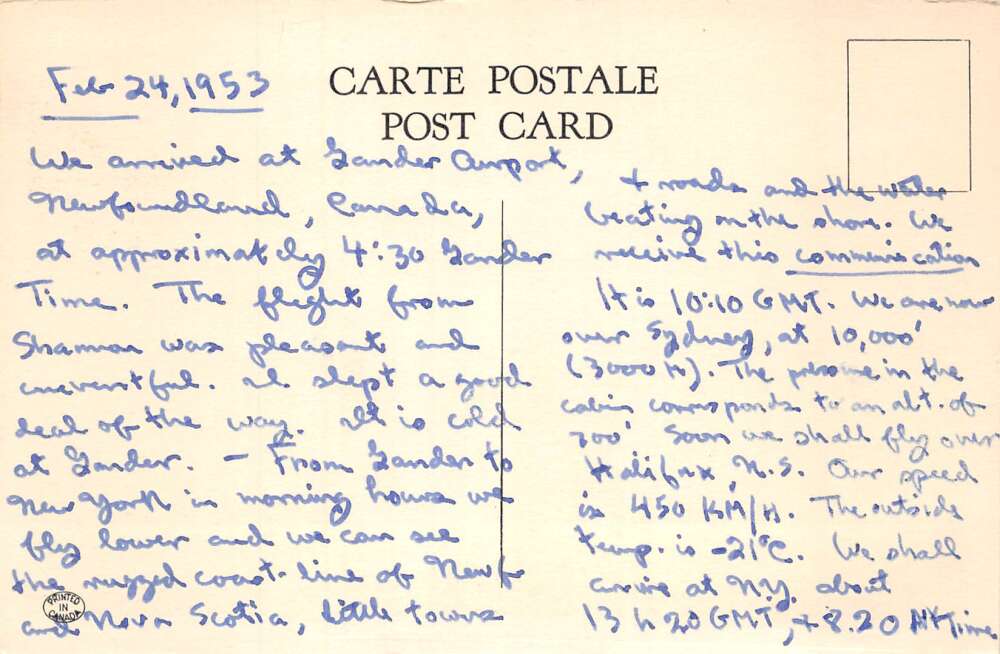 Feb 24, 1953
CARTE POSTALE
POST CARD
We arrived at Gander Airport,
Newfoundland, Canada,
at approximately 4:30 Gander
Time. The flight from
Shannon was pleasant and
uneventful. I slept a good
deal of the way. It is cold
at Gander. – From Gander to
New York in morning hours we
fly lower and we can see
the rugged coast-line of Newf
and Nova Scotia, little towns
PRINTED
IN
CANADA
+ roads and the water
beating on the shore. We
receive this communication
It is 10:10 GMT. We are now
over Sydney, at 10,000'
(3000 M). The pressure in the
cabin corresponds to an alt. of
700' Soon we shall fly over
Halifax, N.S. Our speed
is 450 KM/H. The outside
temp. is -21°C. We shall
arrive at N.Y. about
13 h 20 GMT, + 8.20 NY Time